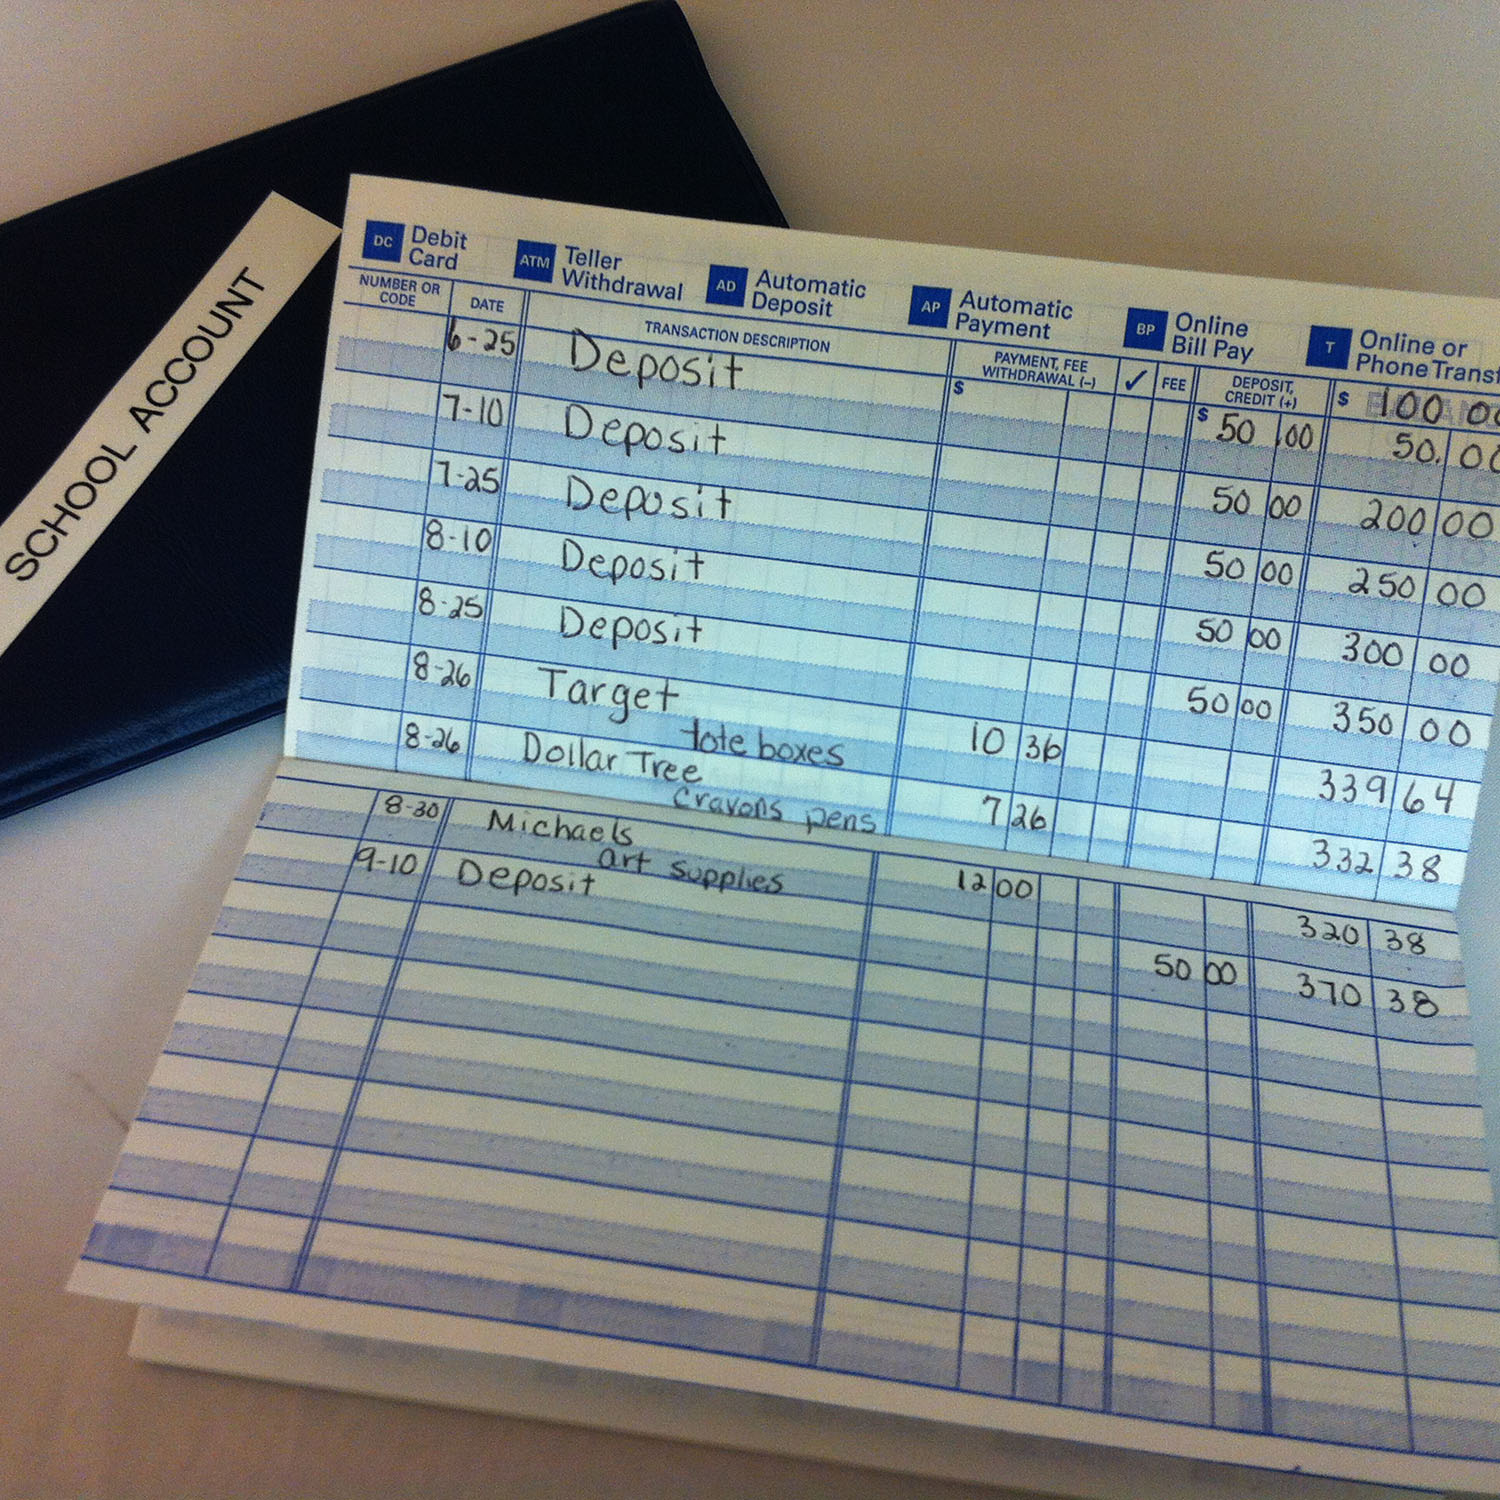 SCHOOL ACCOUNT
DC Debit Card
ATM Teller Withdrawal
AD Automatic Deposit
AP Automatic Payment
BP Online Bill Pay
T Online or Phone Transf
NUMBER OR CODE DATE TRANSACTION DESCRIPTION PAYMENT, FEE WITHDRAWAL (–) ✓ FEE DEPOSIT, CREDIT (+) $ 100 00
6-25 Deposit $ $ 50 00 50. 00
7-10 Deposit 50 00 200 00
7-25 Deposit 50 00 250 00
8-10 Deposit 50 00 300 00
8-25 Deposit 50 00 350 00
8-26 Target 10 36 339 64
tote boxes
8-26 Dollar Tree 7 26 332 38
crayons pens
8-30 Michaels 12 00 320 38
art supplies
9-10 Deposit 50 00 370 38